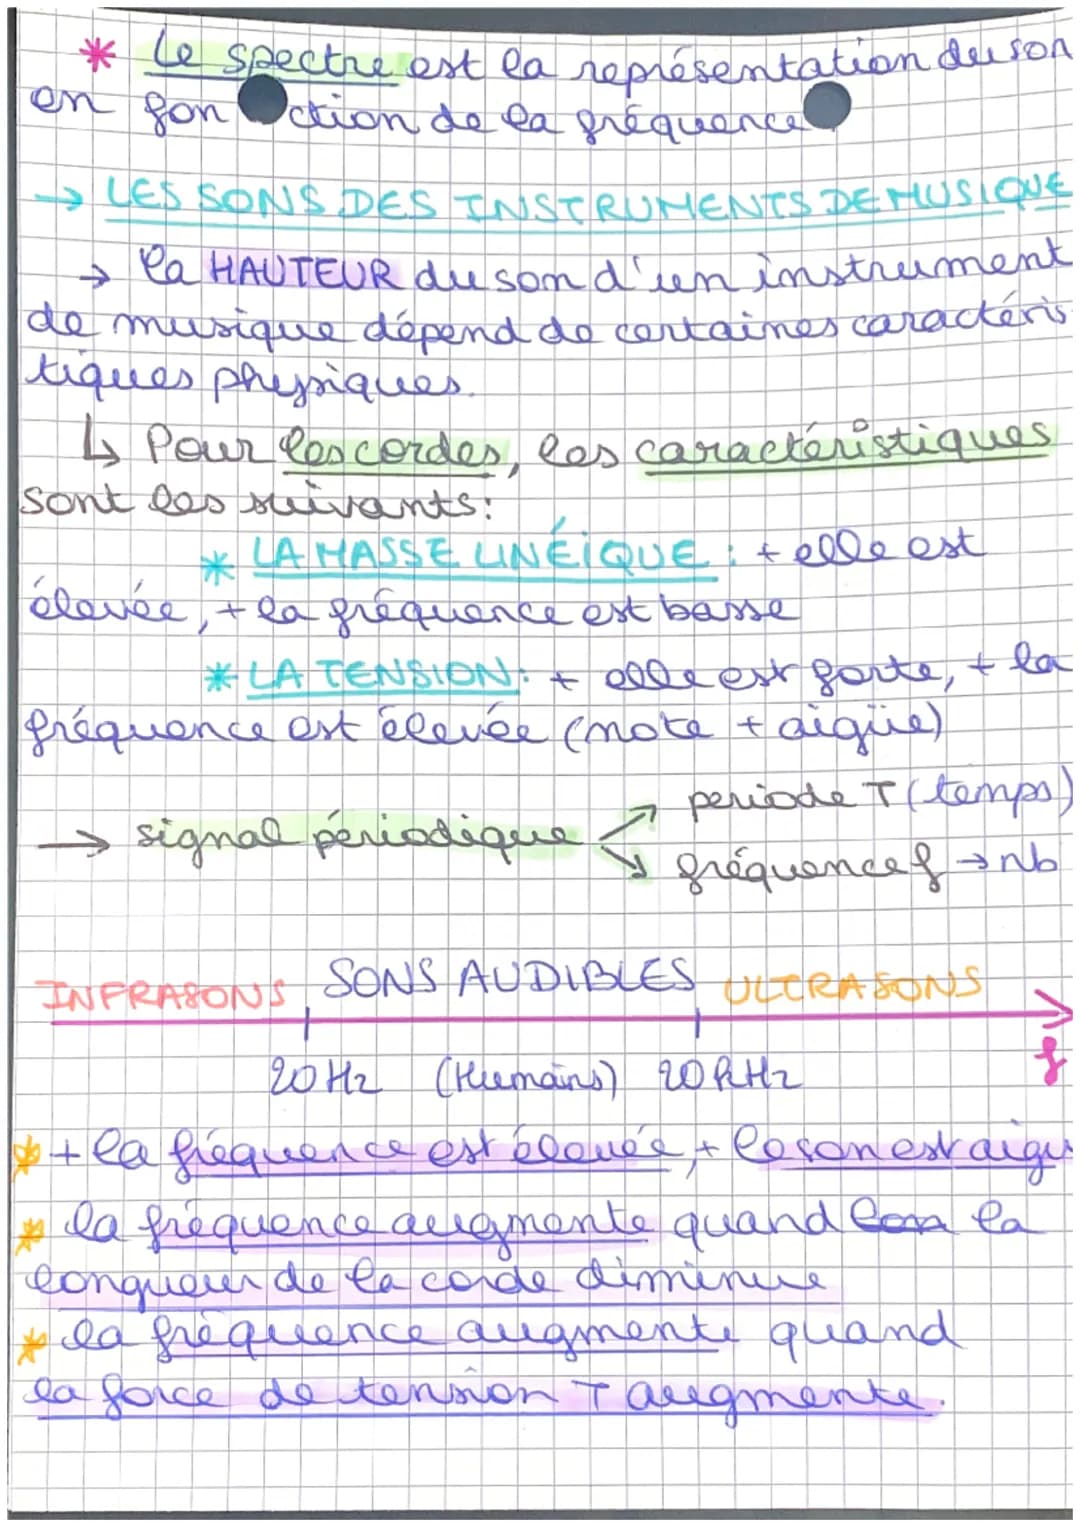 * Le spectre est la représentation du son
en fonction de la fréquence
→ LES SONS DES INSTRUMENTS DE MUSIQUE
→ la HAUTEUR du son d'un instrument
de musique dépend de certaines caractéris
tiques physiques.
↳ Pour les cordes, les caractéristiques
sont les suivants:
* LA MASSE LINÉIQUE : + elle est
élevée, + la fréquence est basse
* LA TENSION: + elle est forte, + la
fréquence est élevée (note + aigüe)
période T (temps)
→ signal périodique
fréquence f → nb
INFRASONS SONS AUDIBLES ULTRASONS
20 Hz (Humains) 20 kHz
f
* + la fréquence est élevée, + le son est aigu
* la fréquence augmente quand la
longueur de la corde diminue
* la fréquence augmente quand
la force de tension T augmente.